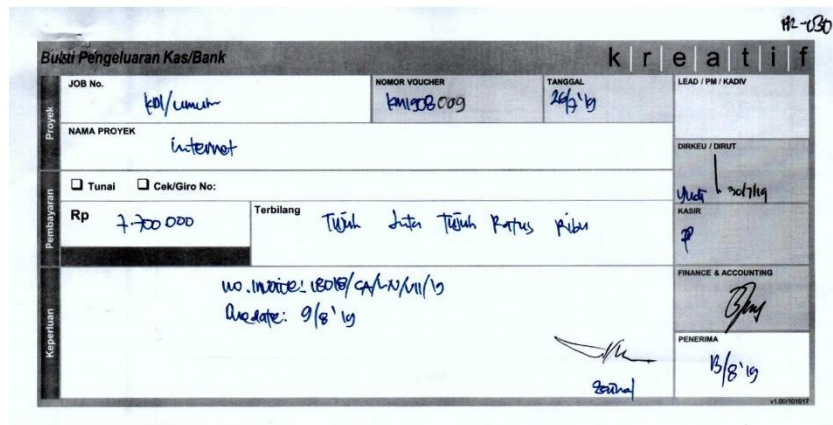 A2-030
Bukti Pengeluaran Kas/Bank
k|r|e|a|t|i|f
Proyek
JOB No.
KM/umum
NOMOR VOUCHER
KM1908009
TANGGAL
26/7'19
LEAD / PM / KADIV
NAMA PROYEK
internet
DIRKEU / DIRUT
Yudi 30/7/19
Pembayaran
Tunai
Cek/Giro No:
Rp 7.700.000
Terbilang
Tujuh Juta Tujuh Ratus Ribu
KASIR
Keperluan
no. Invoice: 18018/CA/LN/VII/19
Due date: 9/8'19
FINANCE & ACCOUNTING
PENERIMA
13/8'19
v1.00/101017